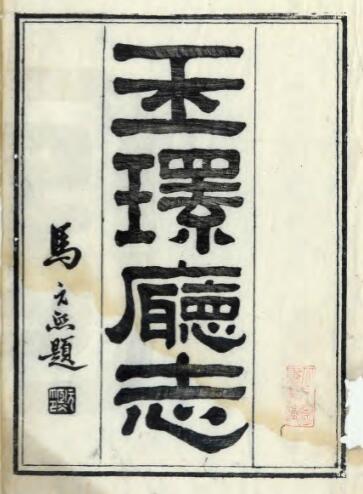 玉環廳志
馬文熙題